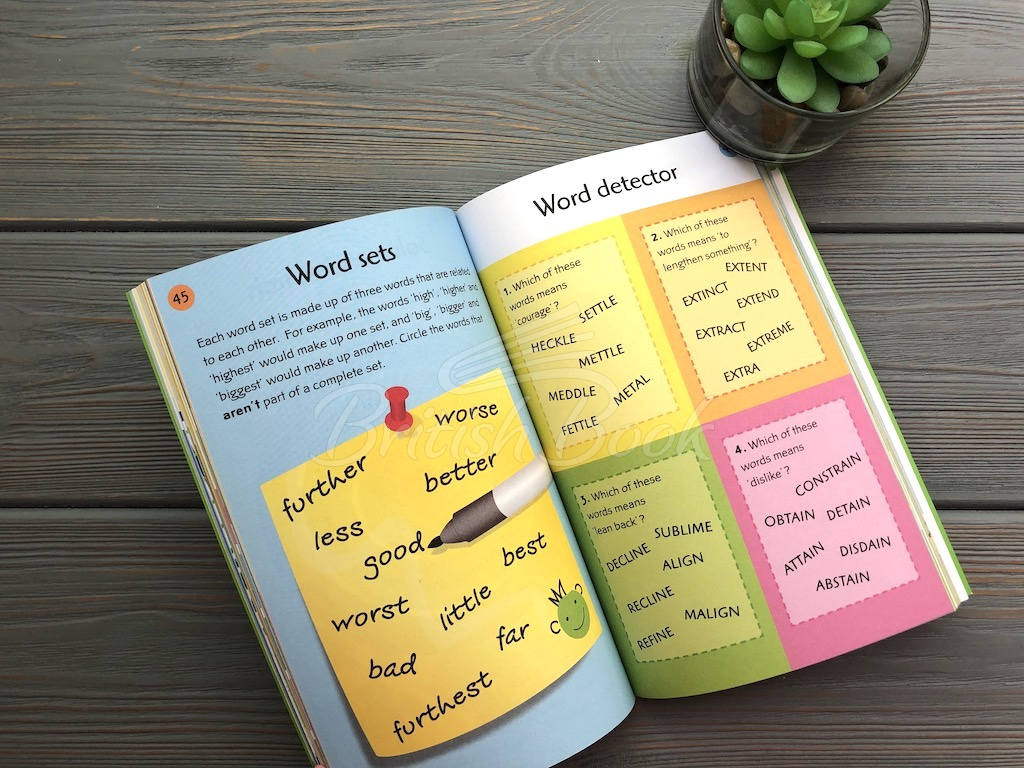 45
Word sets
Each word set is made up of three words that are related
to each other. For example, the words 'high', 'higher' and
'highest' would make up one set, and 'big', 'bigger' and
'biggest' would make up another. Circle the words that
aren't part of a complete set.
worse
further
better
less
good
best
worst
little
far
bad
furthest
Word detector
1. Which of these
words means
'courage'?
SETTLE
HECKLE
METTLE
MEDDLE
METAL
FETTLE
2. Which of these
words means 'to
lengthen something'?
EXTENT
EXTINCT
EXTEND
EXTRACT
EXTREME
EXTRA
3. Which of these
words means
'lean back'?
SUBLIME
DECLINE
ALIGN
RECLINE
MALIGN
REFINE
4. Which of these
words means
'dislike'?
CONSTRAIN
OBTAIN
DETAIN
ATTAIN
DISDAIN
ABSTAIN
British Book